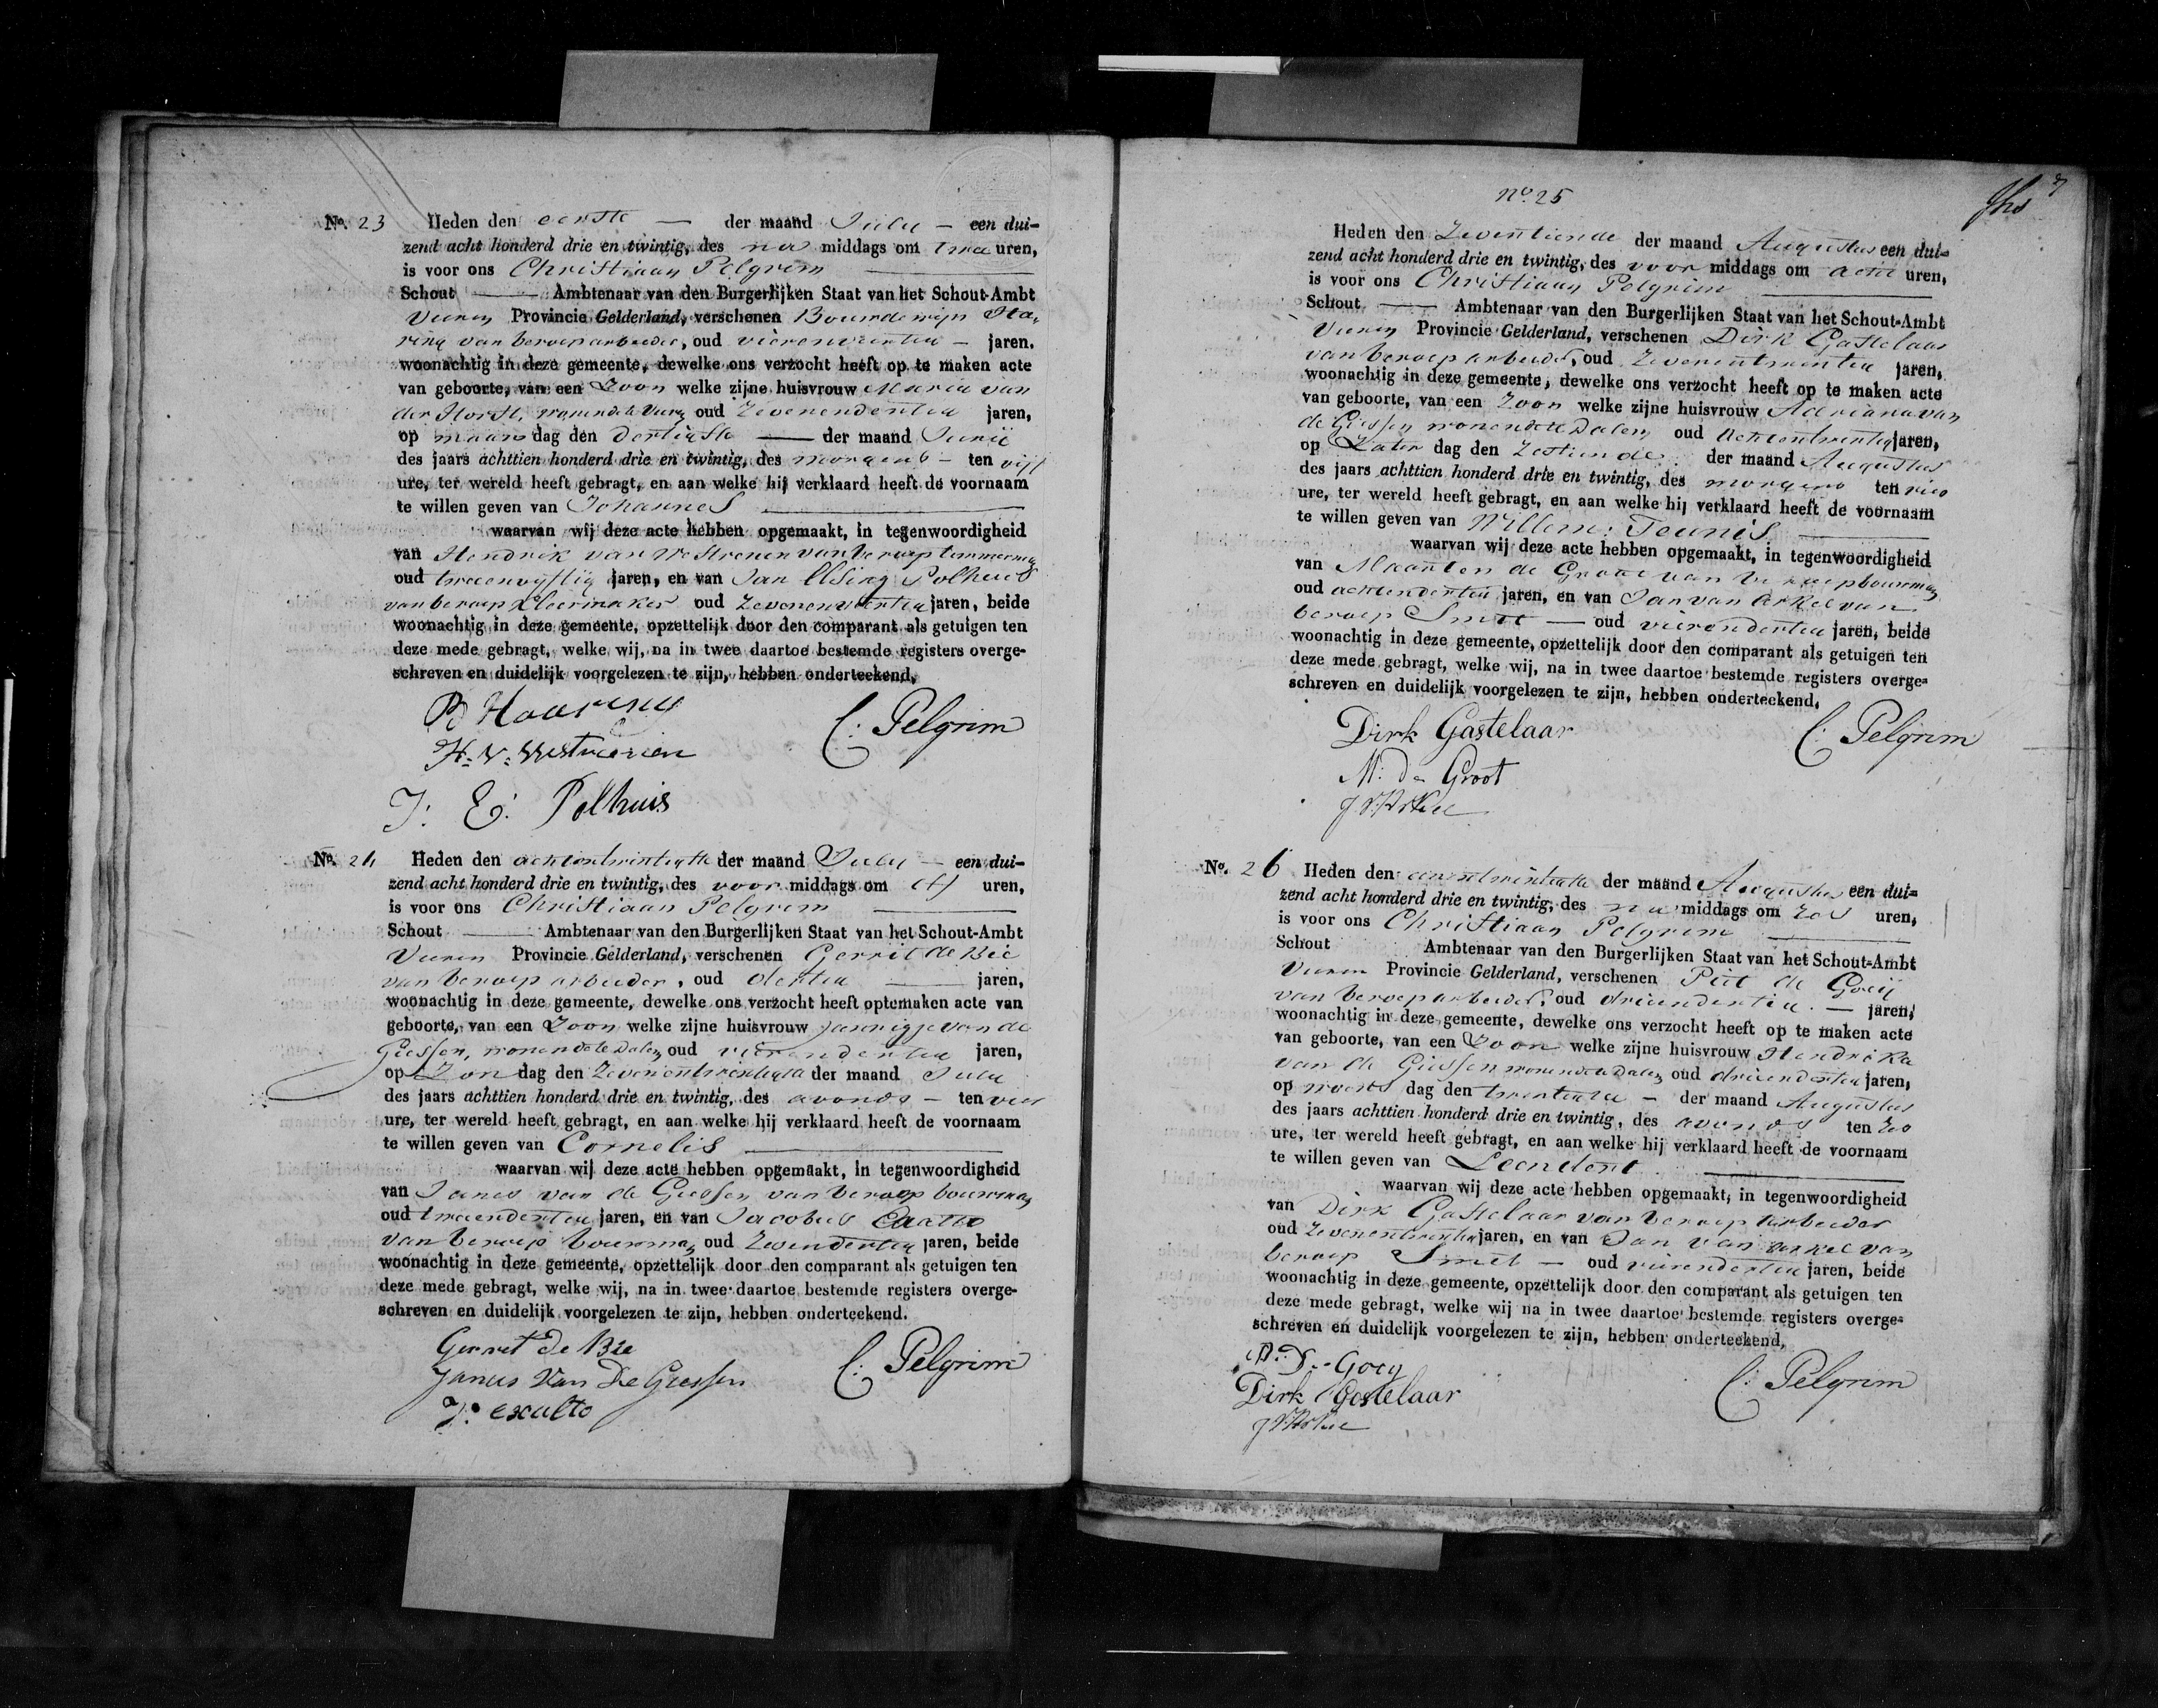 No. 23 Heden den eerste — der maand Julij — een dui-
zend acht honderd drie en twintig, des na middags om twee uren,
is voor ons Christiaan Pelgrim
Schout — Ambtenaar van den Burgerlijken Staat van het Schout-Ambt
Vuren Provincie Gelderland, verschenen Bouwdewijn Ha-
ring van beroep arbeider, oud vierenveertig — jaren,
woonachtig in deze gemeente, dewelke ons verzocht heeft op te maken acte
van geboorte, van een Zoon welke zijne huisvrouw Maria van
der Horst, wonende te Vuren oud Zevenendertig jaren,
op maan dag den dertigste — der maand Junij
des jaars achttien honderd drie en twintig, des morgens — ten vijf
ure, ter wereld heeft gebragt, en aan welke hij verklaard heeft de voornaam
te willen geven van Johannes
waarvan wij deze acte hebben opgemaakt, in tegenwoordigheid
van Hendrik van Westrenen van beroep timmerman
oud tweenvijftig jaren, en van Jan Elsing Polhuis
van beroep kleermaker oud Zevenenveertig jaren, beide
woonachtig in deze gemeente, opzettelijk door den comparant als getuigen ten
deze mede gebragt, welke wij, na in twee daartoe bestemde registers overge-
schreven en duidelijk voorgelezen te zijn, hebben onderteekend,
B Haaring
C: Pelgrim
H. v. Westreenen
J: E: Polhuis
No. 24 Heden den achtentwintigste der maand Julij — een dui-
zend acht honderd drie en twintig, des voor middags om elf uren,
is voor ons Christiaan Pelgrim
Schout — Ambtenaar van den Burgerlijken Staat van het Schout-Ambt
Vuren Provincie Gelderland, verschenen Gerrit de Bie
van beroep arbeider, oud dertig — jaren,
woonachtig in deze gemeente, dewelke ons verzocht heeft optemaken acte van
geboorte, van een Zoon welke zijne huisvrouw Jannigje van de
Giessen, wonende te Dalem oud vierendertig jaren,
op Zon dag den Zevenentwintigste der maand Julij
des jaars achttien honderd drie en twintig, des avonds — ten vier
ure, ter wereld heeft gebragt, en aan welke hij verklaard heeft de voornaam
te willen geven van Cornelis
waarvan wij deze acte hebben opgemaakt, in tegenwoordigheid
van Janus van de Giessen van beroep bouwman
oud tweendertig jaren, en van Jacobus
van beroep bouwman oud Zevendertig jaren, beide
woonachtig in deze gemeente, opzettelijk door den comparant als getuigen ten
deze mede gebragt, welke wij, na in twee daartoe bestemde registers overge-
schreven en duidelijk voorgelezen te zijn, hebben onderteekend.
Gerret de Bie
C: Pelgrim
Janus Van De Giessen
J: exalto
7
No. 25
Heden den Zeventiende der maand Augustus een dui-
zend acht honderd drie en twintig, des voor middags om acht uren,
is voor ons Christiaan Pelgrim
Schout — Ambtenaar van den Burgerlijken Staat van het Schout-Ambt
Vuren Provincie Gelderland, verschenen Dirk Gastelaar
van beroep arbeider, oud Zevenentwintig jaren,
woonachtig in deze gemeente, dewelke ons verzocht heeft op te maken acte
van geboorte, van een Zoon welke zijne huisvrouw Adriana van
de Giessen wonende te Dalem oud achtentwintig jaren,
op Zater dag den Zestiende der maand Augustus
des jaars achttien honderd drie en twintig, des morgens ten vier
ure, ter wereld heeft gebragt, en aan welke hij verklaard heeft de voornaam
te willen geven van Willem: Teunis
waarvan wij deze acte hebben opgemaakt, in tegenwoordigheid
van Maanten de Groot van beroep bouwman
oud achtendertig jaren, en van Jan van Arkel van
beroep Smit — oud vierendertig jaren, beide
woonachtig in deze gemeente, opzettelijk door den comparant als getuigen ten
deze mede gebragt, welke wij, na in twee daartoe bestemde registers overge-
schreven en duidelijk voorgelezen te zijn, hebben onderteekend,
Dirk Gastelaar
C: Pelgrim
M: de Groot
J V Arkel
No. 26 Heden den eenentwintigste der maand Augustus een dui-
zend acht honderd drie en twintig, des na middags om zes uren,
is voor ons Christiaan Pelgrim
Schout Ambtenaar van den Burgerlijken Staat van het Schout-Ambt
Vuren Provincie Gelderland, verschenen Piet de Goeij
van beroep arbeider, oud drieendertig. — jaren,
woonachtig in deze gemeente, dewelke ons verzocht heeft op te maken acte
van geboorte, van een Zoon welke zijne huisvrouw Hendrika
van de Giessen wonende te Dalem oud drieendertig jaren,
op woens dag den twintigste — der maand Augustus
des jaars achttien honderd drie en twintig, des avonds ten zes
ure, ter wereld heeft gebragt, en aan welke hij verklaard heeft de voornaam
te willen geven van Leendert
waarvan wij deze acte hebben opgemaakt, in tegenwoordigheid
van Dirk Gastelaar van beroep arbeider
oud Zevenentwintig jaren, en van Jan van Arkel van
beroep Smit — oud vierendertig jaren, beide
woonachtig in deze gemeente, opzettelijk door den comparant als getuigen ten
deze mede gebragt, welke wij na in twee daartoe bestemde registers overge-
schreven en duidelijk voorgelezen te zijn, hebben onderteekend,
P: De Goey
C: Pelgrim
Dirk Gastelaar
J V Arkel